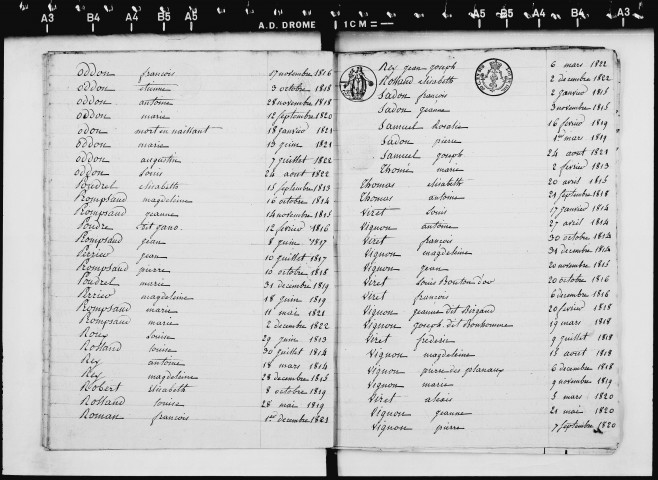 A3 B4 A4 B5 A5 A.D. DROME 1 CM A5 B5 A4 B4 A3
oddon françois 17 novembre 1816
oddon etienne 3 octobre 1818
oddon antoine 28 novembre 1818
oddon marie 12 septembre 1820
odon mort en naissant 18 janvier 1821
oddon marie 15 juin 1821
oddon augustin 7 juillet 1822
oddon louis 24 aout 1822
Poudrel elisabeth 15 septembre 1813
Rompsaud magdeleine 16 octobre 1814
Rompsaud jeanne 14 novembre 1815
Poudre 12 février 1816
Rompsaud jean 8 juin 1817
Perrieu jean 10 juillet 1817
Rompsaud pierre 10 octobre 1818
Poudrel marie 31 decembre 1819
Perrieu magdeleine 18 juin 1819
Rompsaud marie 11 mai 1821
Rompsaud marie 2 decembre 1822
Roux louise 29 juin 1813
Rolland louise 30 juillet 1814
Rey antoine 18 mars 1814
Rey magdeleine 28 decembre 1815
Robert Elisabeth 8 octobre 1819
Rolland louise 28 mai 1819
Roman françois 1er decembre 1821
Rey jean joseph 6 mars 1822
Rolland elisabeth 2 decembre 1822
Sadon françois 2 janvier 1815
Sadon jeanne 3 novembre 1815
Samuel Rosalie 16 février 1819
Sadon pierre 1er mars 1819
Samuel joseph 24 aout 1821
Thome marie 2 février 1813
Thomas elisabeth 20 avril 1815
Thomas antoine 21 septembre 1818
Viret louis 17 janvier 1814
Vignon antoine 27 avril 1814
Viret françois 30 octobre 1814
Vignon magdeleine 31 decembre 1814
Vignon jean 20 novembre 1815
Viret louis Bouton d'or 20 octobre 1816
Viret françois 6 decembre 1816
Vignon jeanne dit Brigand 20 février 1818
Vignon joseph dit Bonhomme 19 mars 1818
Viret frederic 9 juillet 1818
Vignon magdeleine 15 aout 1818
Vignon pierre des planaux 6 decembre 1818
Vignon marie 9 novembre 1819
Viret alexis 5 mars 1820
Vignon jeanne 21 mai 1820
Vignon pierre 7 septembre 1820